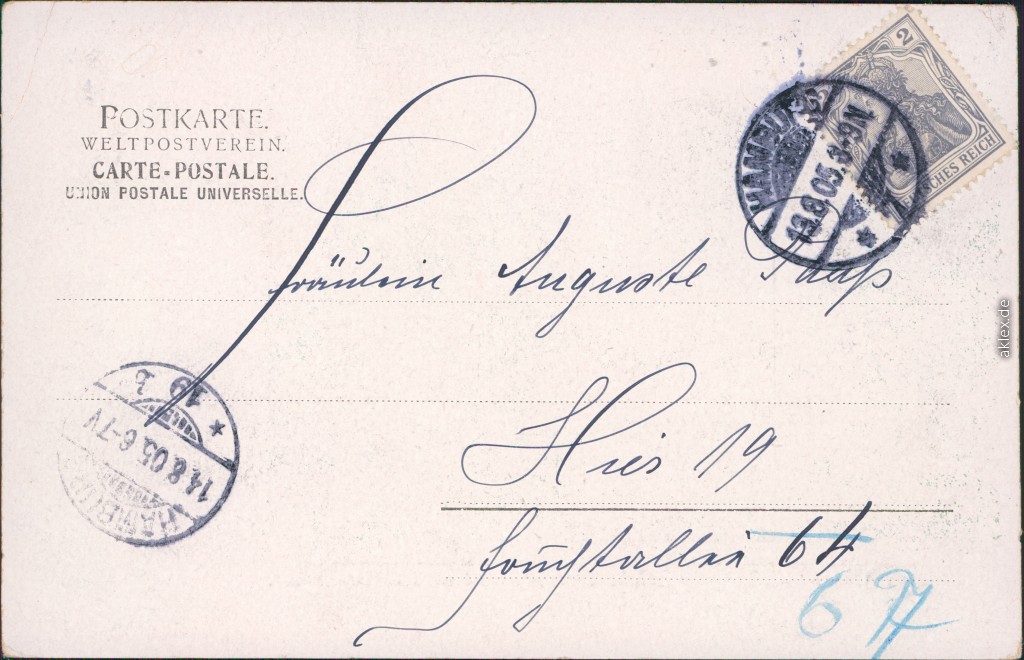 POSTKARTE.
WELTPOSTVEREIN.
CARTE-POSTALE.
UNION POSTALE UNIVERSELLE.
2
DEUTSCHES REICH
HAMBURG
13.8.05. 8-9N
* 7 *
Fräulein Auguste
Hier 19
64
67
* 19 b
14.8.05. 6-7V
HAMBURG
aklex.de